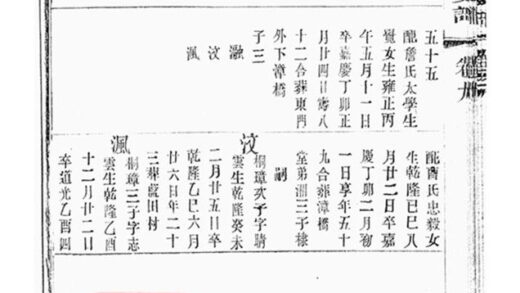 五十五
配詹氏太學生
覺女生雍正丙
午五月十一日
卒嘉慶丁卯正
月廿四日壽八
十二合葬東門
外下漳橋
子三
瀜
汶
渢
配氏忠毅女
生乾隆己巳八
月廿二日卒嘉
慶丁卯二月初
一日享年五十
九合葬漳橋
堂弟三子棣
嗣
汶
桐璋次子字晴
雲生乾隆癸未
二月廿五日卒
乾隆乙巳六月
廿六日年二十
三葬田村
渢
桐璋三子字志
雲生乾隆乙酉
十二月廿二日
卒道光乙酉四